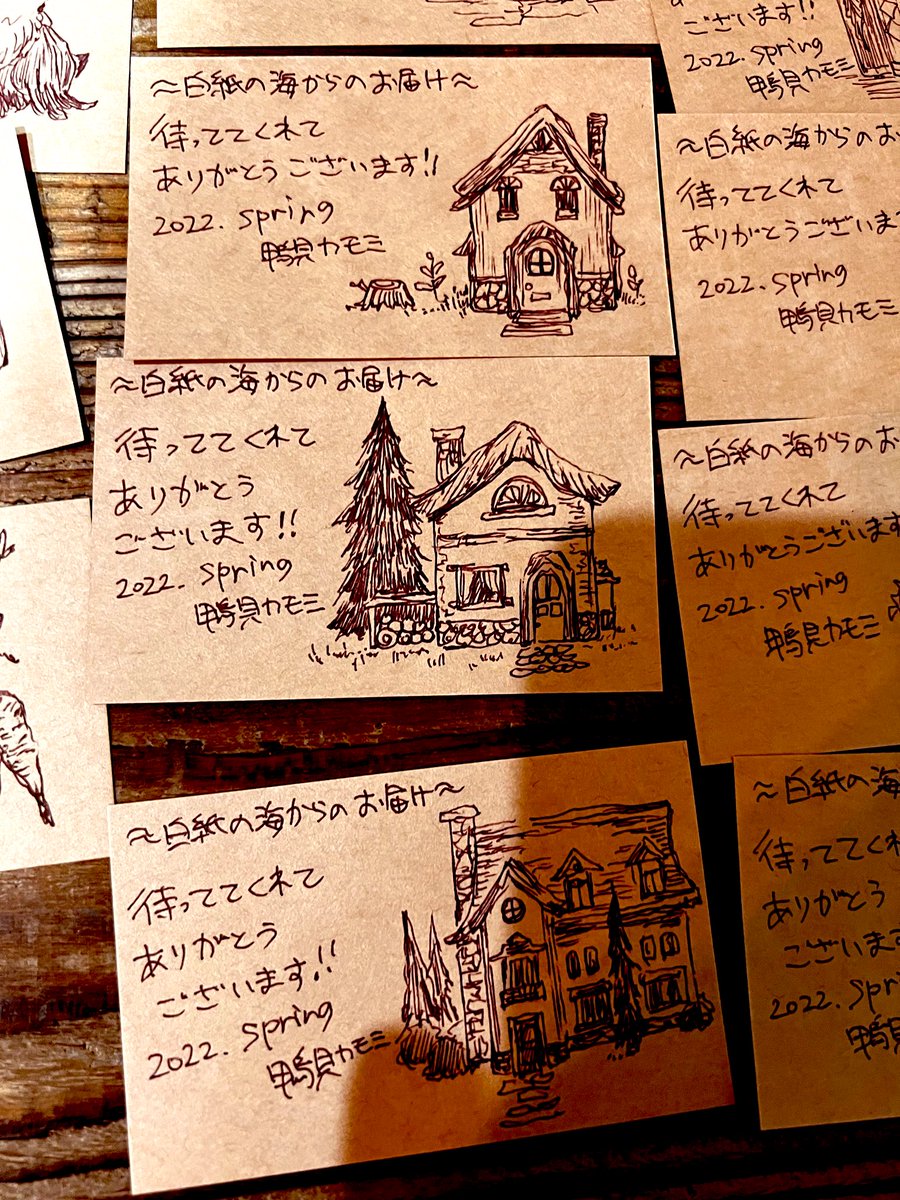 ございます!!
2022. spring
鴨見カモミ
～白紙の海からのお届け～
待っててくれて
ありがとうございます!!
2022. spring
鴨見カモミ
～白紙の海からのお
待っててくれて
ありがとうございま
2022. spring
鴨見カモミ
～白紙の海からのお届け～
待っててくれて
ありがとう
ございます!!
2022. spring
鴨見カモミ
～白紙の海からのお
待っててくれて
ありがとうございます
2022. spring
鴨見カモミ
～白紙の海からのお届け～
待っててくれて
ありがとう
ございます!!
2022. spring
鴨見カモミ
～白紙の海
待っててくれ
ありがとう
ございます
2022. spri
鴨見